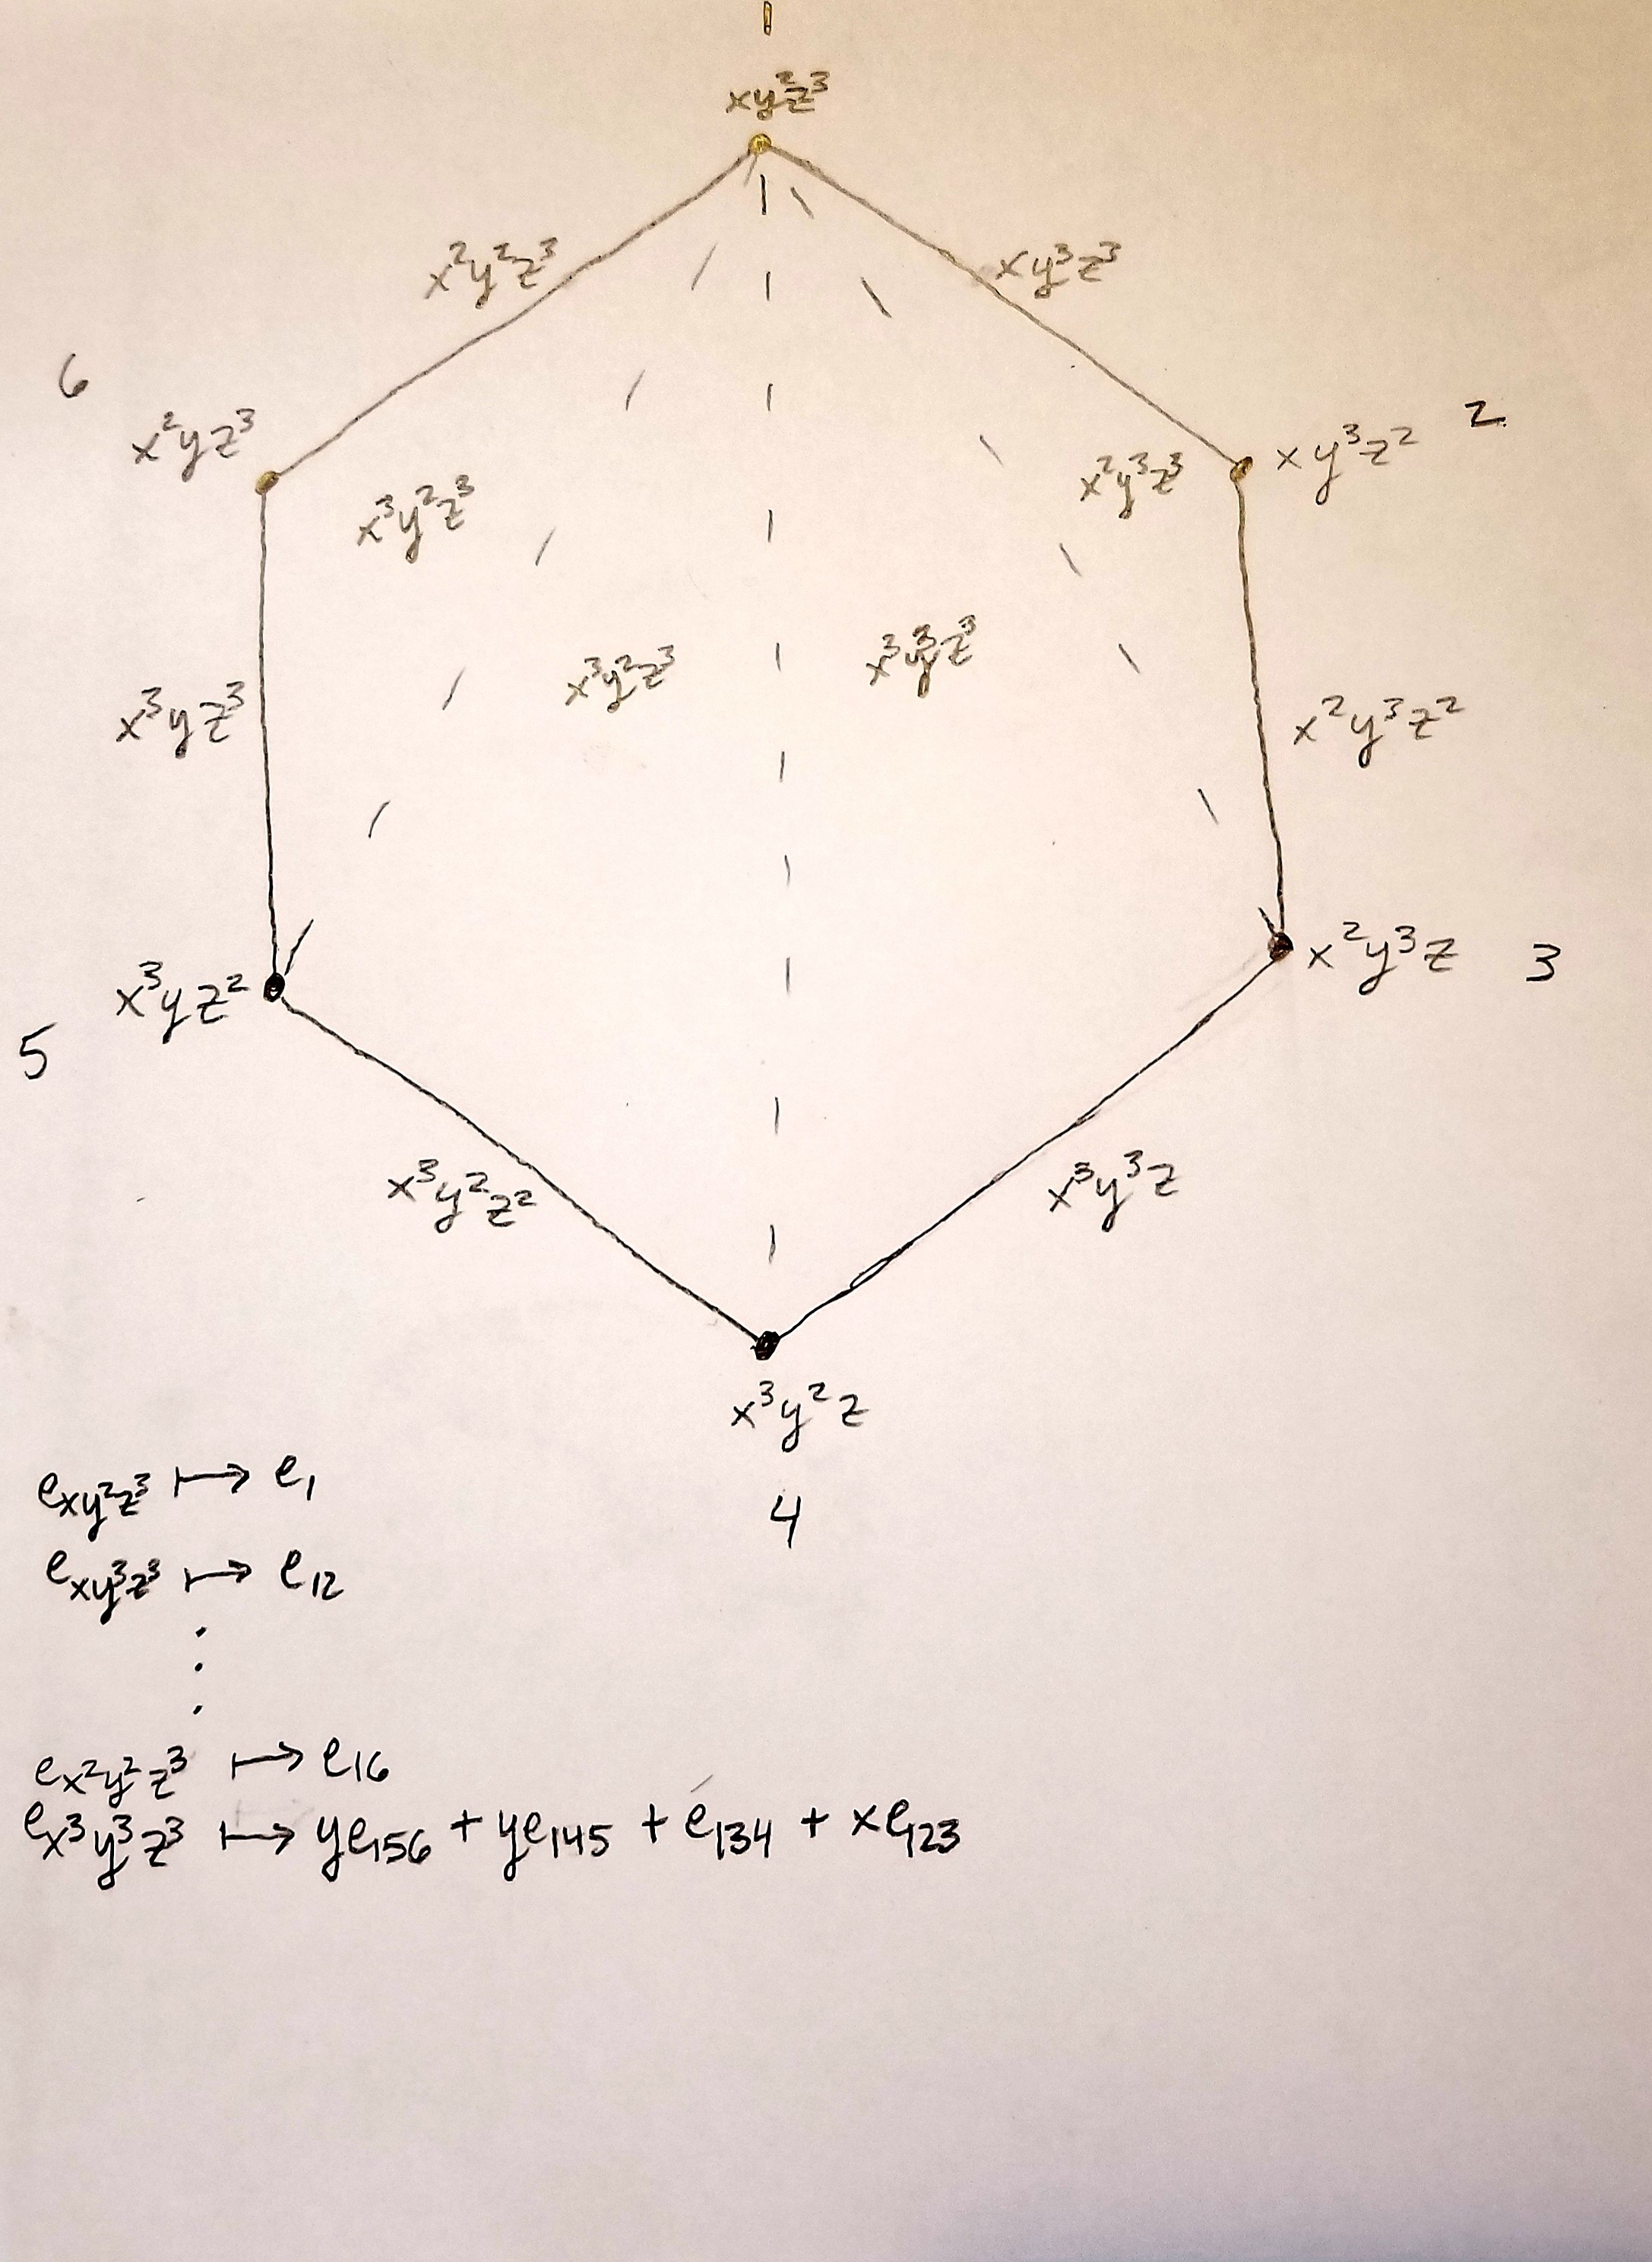 1
xy²z³
x²y²z³
xy³z³
6
x²yz³
x³y²z³
x²y³z³
xy³z²
2
x³yz³
x³y²z³
x³y³z³
x²y³z²
x³yz²
5
x²y³z
3
x³y²z²
x³y³z
x³y²z
4
e_{xy²z³} ↦ e₁
e_{xy³z³} ↦ e₁₂
⋮
e_{x²y²z³} ↦ e₁₆
e_{x³y³z³} ↦ ye₁₅₆ + ye₁₄₅ + e₁₃₄ + xe₁₂₃